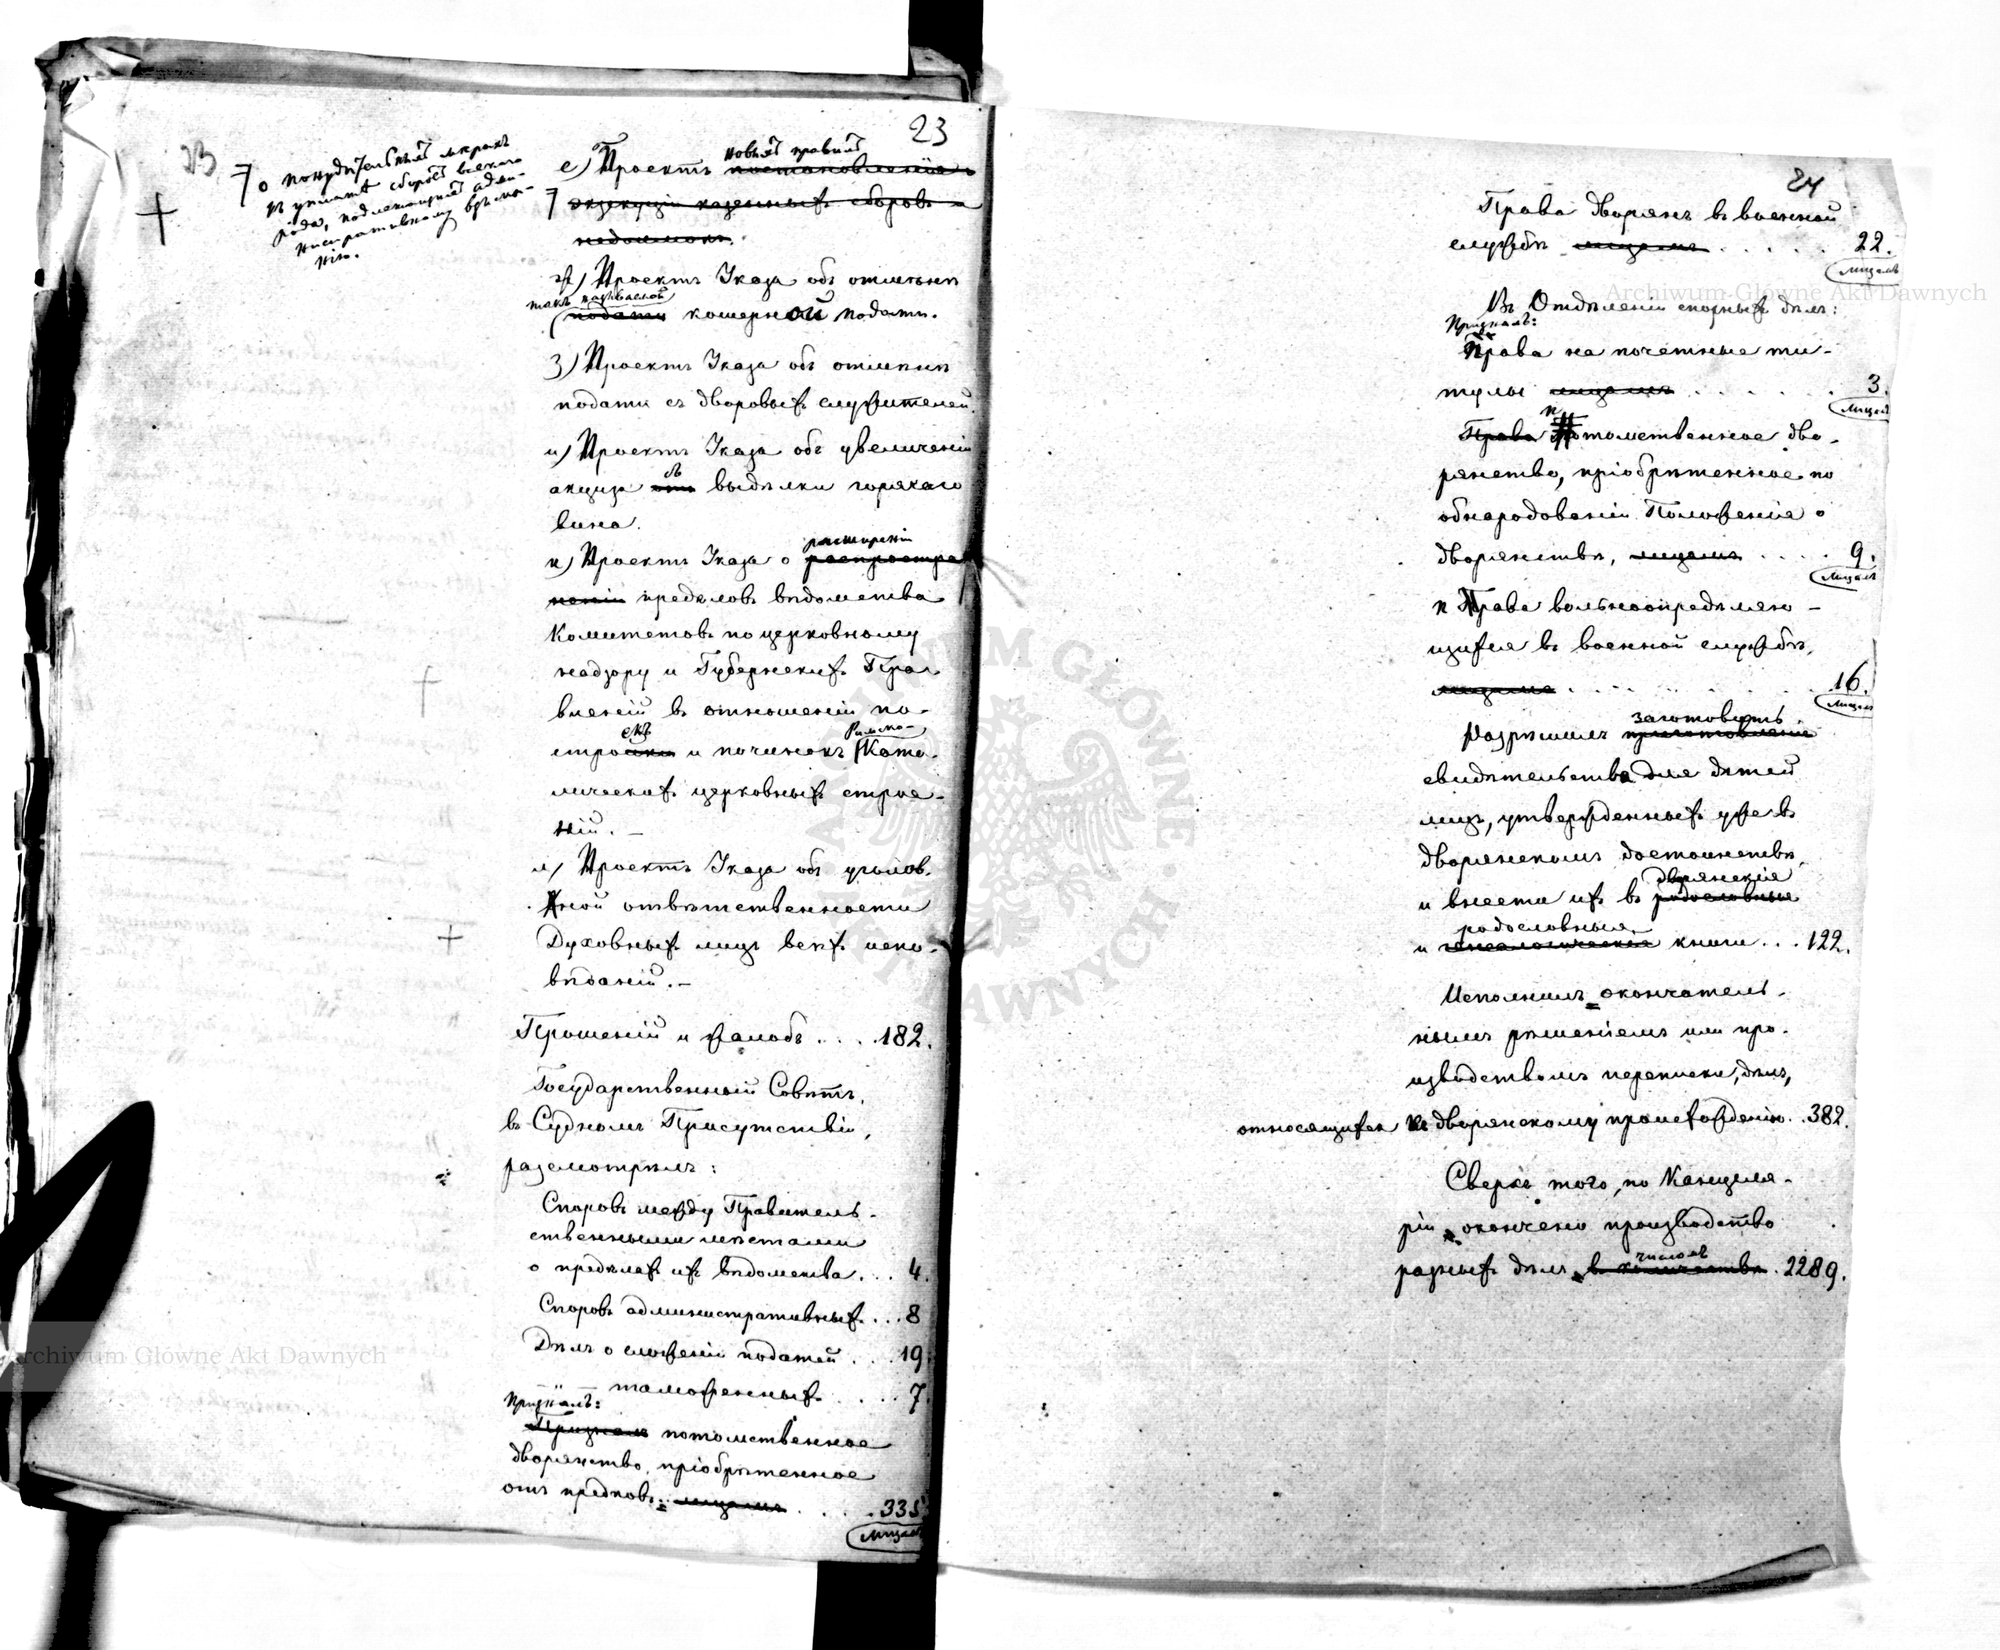 23
о понудительныхъ мѣрахъ
къ уплатѣ сборовъ всякаго
рода, подлежащихъ адми-
нистративному вѣдом-
нію.
новыхъ правилъ
е) Проектъ постановленія о
экзекуціи казенныхъ сборовъ и
недоимокъ.
ж) Проектъ Указа объ отмѣнѣ
такъ называемой
подати кошерной подати.
з) Проектъ Указа объ отмѣнѣ
подати съ дворовыхъ служителей.
и) Проектъ Указа объ увеличеніи
акциза отъ съ выдѣлки горячаго
вина.
расширеніи
к) Проектъ Указа о распростра
неніи предѣловъ вѣдомства
Комитетовъ по церковному
надзору и Губернскихъ Прав
вленій въ отношеніи по-
Римско-
строекъ и починокъ Като-
лическихъ церковныхъ строе-
ній. —
л) Проектъ Указа объ уголов-
ной отвѣтственности
Духовныхъ лицъ всѣхъ испо-
вѣданій. —
Прошеній и жалобъ . . . . 182.
Государственный Совѣтъ,
въ Судномъ Присутствіи,
разсмотрѣлъ:
Споровъ между Правитель-
ственными мѣстами
о предѣлахъ ихъ вѣдомства . . . 4.
Споровъ административныхъ . . . 8
Дѣлъ о сложеніи податей . . . 19.
— " — таможенныхъ . . . . 7.
Призналъ:
Призналъ потомственное
дворянство, пріобрѣтенное
отъ предковъ: лицамъ . . . . 335
лицамъ
24
Права дворянъ въ военной
службѣ лицамъ . . . . . 22.
лицамъ
Въ Отдѣленіи спорныхъ дѣлъ:
Призналъ:
Права на почетные ти-
тулы лицамъ . . . . . 3.
лицамъ
Права потомственное дво-
рянство, пріобрѣтенное по
обнародованіи Положенія о
дворянствѣ, лицамъ . . . . 9.
лицамъ
Права вольноопредѣляю-
щихся въ военной службѣ,
лицамъ . . . . . . . 16.
лицамъ
заготовить
Разрѣшилъ приготовленіе
свидѣтельства для дѣтей
лицъ, утвержденныхъ уже въ
дворянскомъ достоинствѣ,
дворянскія
и внести ихъ въ родословныя
родословныя
и генеалогическія книги . . . 122.
Исполнилъ окончатель-
нымъ рѣшеніемъ или про-
изводствомъ переписки, дѣлъ,
относящихся къ дворянскому происхожденію . . 382.
Сверхъ того, по Канцеля-
ріи окончено производство
числомъ
разныхъ дѣлъ въ количествѣ . 2289.
Archiwum Główne Akt Dawnych
Archiwum Główne Akt Dawnych
ARCHIWUM GŁÓWNE AKT DAWNYCH